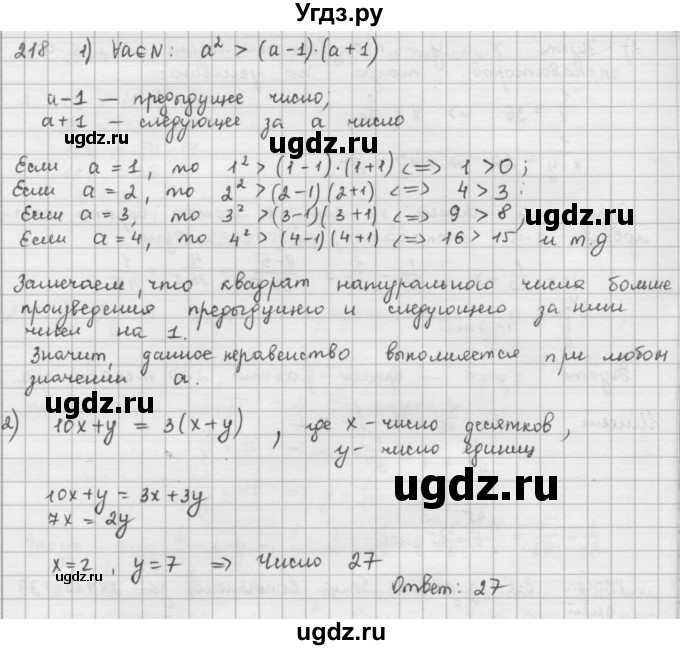 Угдз.ру
218 1) ∀a∈N: a² > (a-1)·(a+1)
a-1 — предыдущее число;
a+1 — следующее за a число
Если a = 1, то 1² > (1-1)·(1+1) <=> 1 > 0;
Если a = 2, то 2² > (2-1)(2+1) <=> 4 > 3;
Если a = 3, то 3² > (3-1)(3+1) <=> 9 > 8,
Если a = 4, то 4² > (4-1)(4+1) <=> 16 > 15 и т.д
Замечаем, что квадрат натурального числа больше
произведения предыдущего и следующего за ним
чисел на 1.
Значит, данное неравенство выполняется при любом
значении a.
2) 10x+y = 3(x+y), где x - число десятков,
y - число единиц
10x+y = 3x+3y
7x = 2y
x=2, y=7 => Число 27
Ответ: 27
ugdz.ru
ugdz.ru
ugdz.ru
ugdz.ru
ugdz.ru
ugdz.ru
ugdz.ru
ugdz.ru
ugdz.ru
ugdz.ru